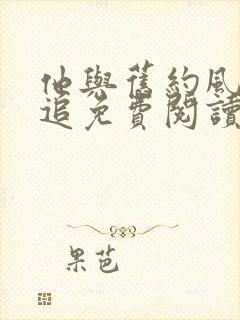 他與舊約風
追免費閱讀
果芭